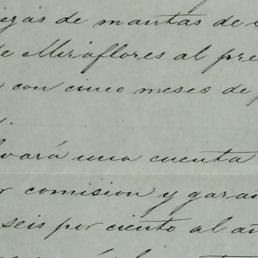 de mantas de
de Miraflores al pre
con cinco meses de
una cuenta
comision y garan
seis por ciento al añ